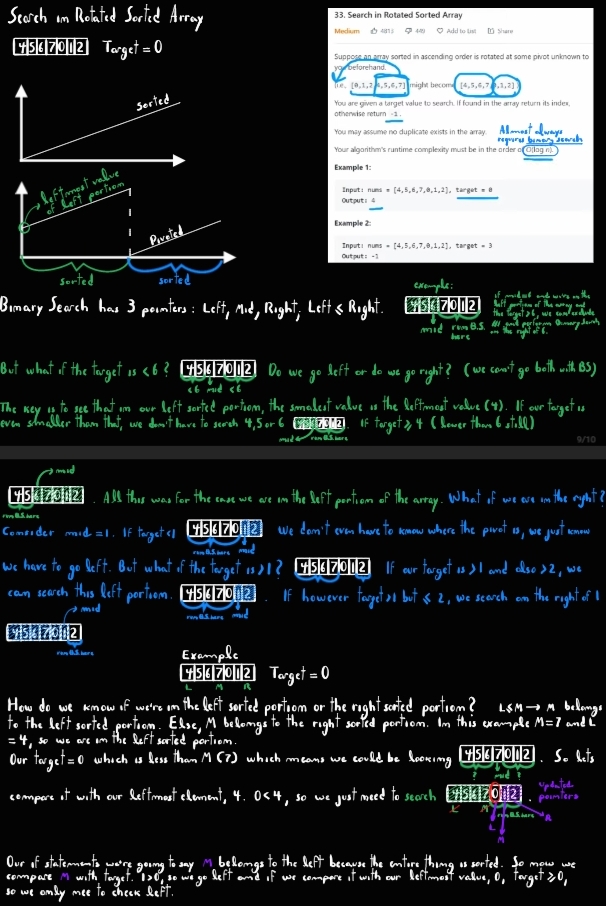 Search in Rotated Sorted Array
4 5 6 7 0 1 2 Target = 0
Sorted
leftmost value
of left portion
Pivoted
sorted sorted
33. Search in Rotated Sorted Array
Medium 4813 449 Add to List Share
Suppose an array sorted in ascending order is rotated at some pivot unknown to
you beforehand.
(i.e., [0,1,2,4,5,6,7] might become [4,5,6,7,0,1,2]).
You are given a target value to search. If found in the array return its index,
otherwise return -1.
You may assume no duplicate exists in the array.
Almost always
requires binary search
Your algorithm's runtime complexity must be in the order of O(log n).
Example 1:
Input: nums = [4,5,6,7,0,1,2], target = 0
Output: 4
Example 2:
Input: nums = [4,5,6,7,0,1,2], target = 3
Output: -1
Binary Search has 3 pointers: Left, Mid, Right; Left ≤ Right.
example:
4 5 6 7 0 1 2
mid run B.S.
here
if mid=6 and we're in the
left portion of the array and
the target > 6, we can exclude
and perform Binary Search
on the right of 6.
But what if the target is <6? 4 5 6 7 0 1 2 Do we go left or do we go right? (we can't go both with BS)
<6 mid <6
The key is to see that in our left sorted portion, the smallest value is the leftmost value (4). If our target is
even smaller than that, we don't have to serch 4,5 or 6 4 5 6 7 0 1 2. If target ≥ 4 (lower than 6 still)
mid run B.S. here
9/10
mid
4 5 6 7 0 1 2. All this was for the case we are in the left portion of the array. What if we are in the right?
run B.S. here
Consider mid = 1. If target <1 4 5 6 7 0 1 2 We don't even have to know where the pivot is, we just know
run B.S. here mid
we have to go left. But what if the target is >1? 4 5 6 7 0 1 2 If our target is >1 and also >2, we
can search this left portion. 4 5 6 7 0 1 2. If however target >1 but ≤ 2, we search on the right of 1
run B.S. here mid
mid
4 5 6 7 0 1 2
run B.S. here
Example
4 5 6 7 0 1 2 Target = 0
L M R
How do we know if we're in the left sorted portion or the right sorted portion? L≤M → M belongs
to the left sorted portion. Else, M belongs to the right sorted portion. In this example M=7 and L
= 4, so we are in the left sorted portion.
Our target = 0 which is less than M (7) which means we could be looking 4 5 6 7 0 1 2. So lets
? mid ?
compare it with our leftmost element, 4. 0<4, so we just need to search 4 5 6 7 0 1 2. updated
pointers
L M run B.S. here
L R
M
Our if statements we're going to say M belongs to the left because the entire thing is sorted. So now we
compare M with target. 1>0, so we go left and if we compare it with our leftmost value, 0, target ≥ 0,
so we only nee to check left.